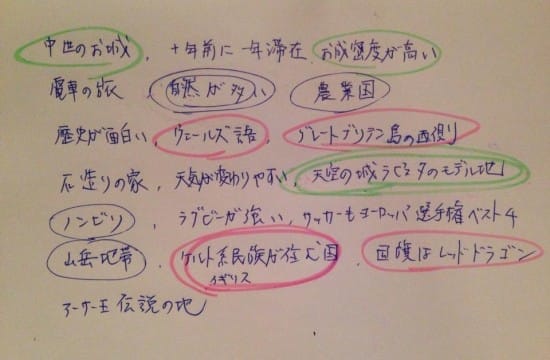 中世のお城, 十年前に一年滞在, お城密度が高い
電車の旅, 自然が多い, 農業国
歴史が面白い, ウェールズ語, グレートブリテン島の西側
石造りの家, 天気が変わりやすい, 天空の城ラピュタのモデル地
ノンビリ, ラグビーが強い, サッカーもヨーロッパ選手権ベスト4
山岳地帯, ケルト系民族が住む国, 国旗はレッドドラゴン
イギリス
アーサー王伝説の地